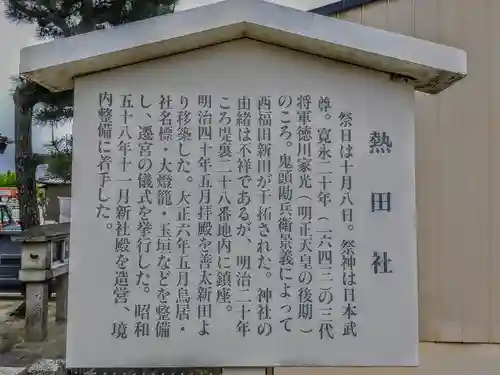 熱田社
祭日は十月八日。祭神は日本武
尊。寛永二十年(一六四三)の三代
将軍徳川家光(明正天皇の後期)
のころ。鬼頭勘兵衛景義によって
西福田新田が干拓された。神社の
由緒は不祥であるが、明治二十年
ころ堤裏二十八番地内に鎮座。
明治四十年五月拝殿を善太新田よ
り移築した。大正六年五月鳥居・
社名標・大燈籠・玉垣などを整備
し、遷宮の儀式を挙行した。昭和
五十八年十一月新社殿を造営、境
内整備に着手した。